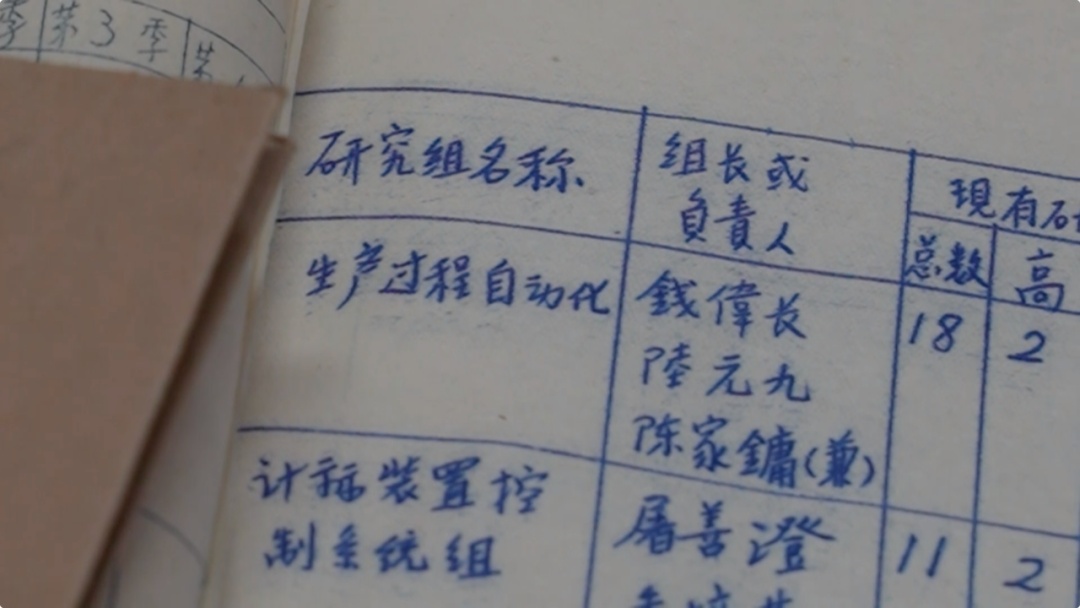 季 第3季 第
研究组名称
组长或
负責人
現有研
总数
高
生产过程自动化
錢偉长
陸元九
陈家鏞(兼)
18
2
计标装置控
制系统组
屠善澄
11
2